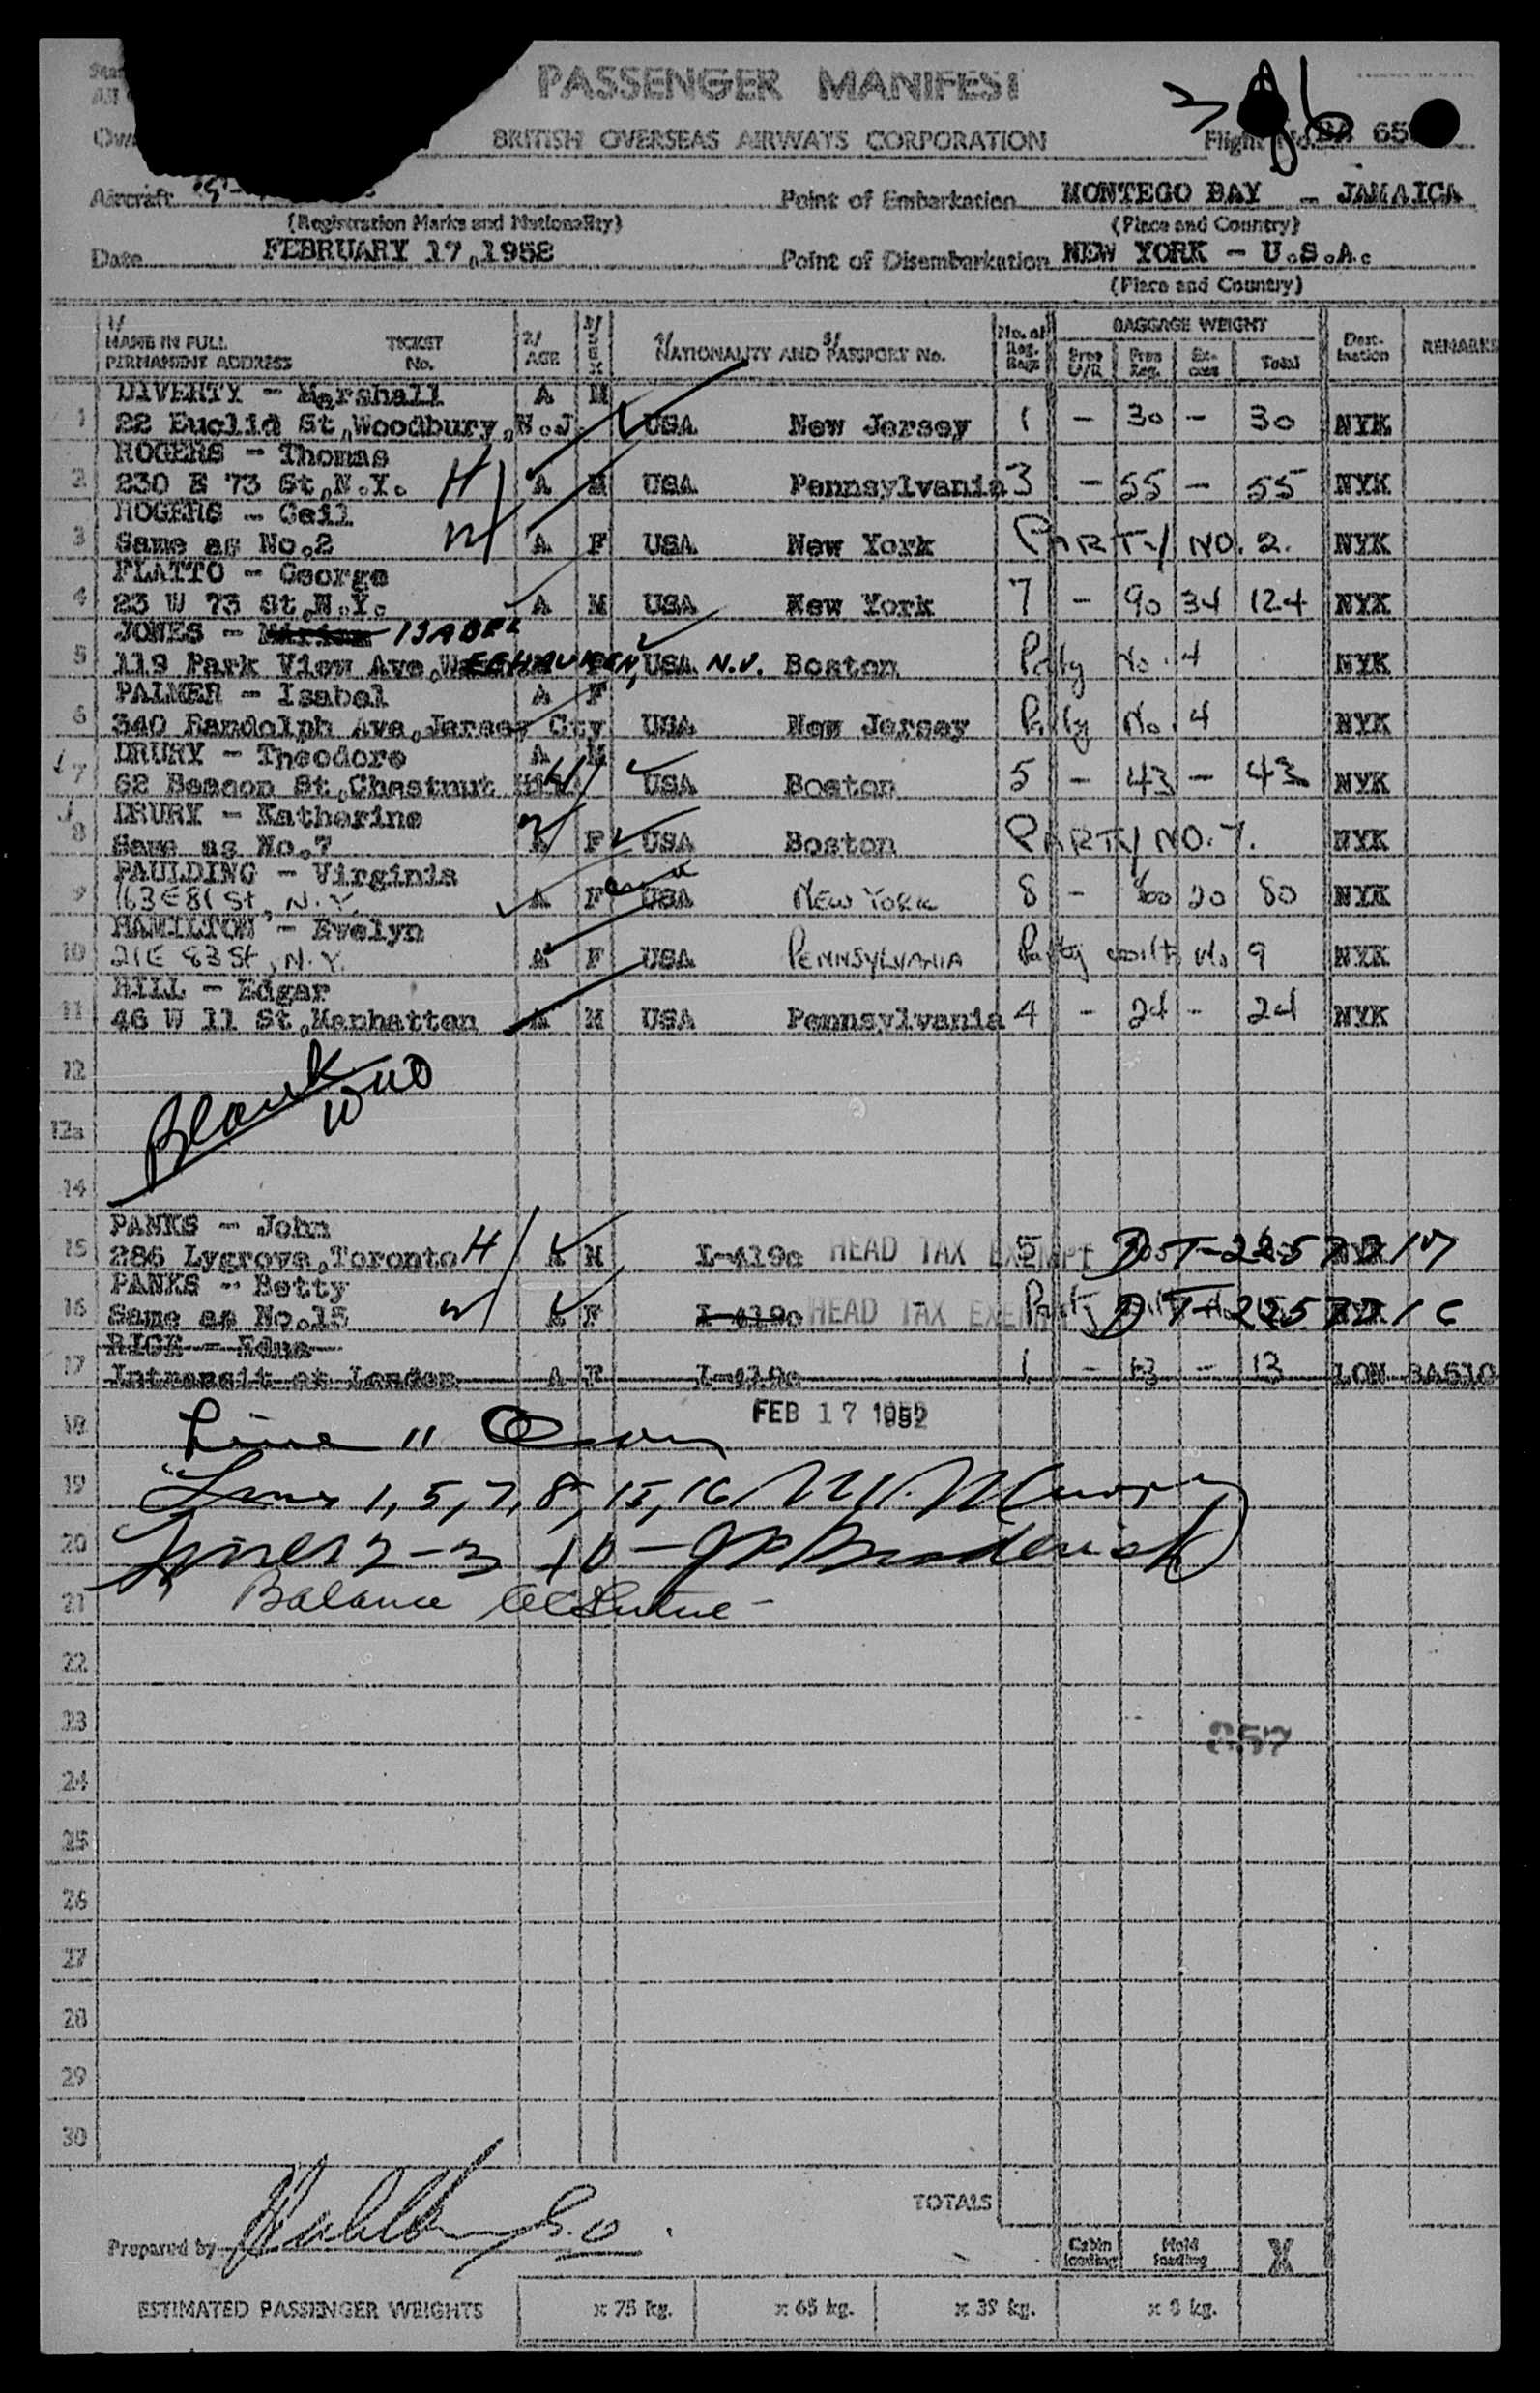 PASSENGER MANIFEST
BRITISH OVERSEAS AIRWAYS CORPORATION
Flight No. BA 65
Aircraft
Point of Embarkation MONTEGO BAY - JAMAICA
(Registration Marks and Nationality) (Place and Country)
Date FEBRUARY 17, 1952 Point of Disembarkation NEW YORK - U.S.A.
(Place and Country)
1/ NAME IN FULL PERMANENT ADDRESS TICKET No. 2/ AGE 3/ SEX 4/ NATIONALITY AND 5/ PASSPORT No. No. of Reg. Bags BAGGAGE WEIGHT Free U/R Free Reg. Ex-cess Total Dest-ination REMARKS
DIVERTY - Marshall A M
1 22 Euclid St, Woodbury, N.J. USA New Jersey 1 - 30 - 30 NYK
ROGERS - Thomas
2 230 E 73 St, N.Y. H A M USA Pennsylvania 3 - 55 - 55 NYK
ROGERS - Gail
3 Same as No.2 W A F USA New York PARTY NO. 2. NYK
FLATTO - George
4 23 W 73 St, N.Y. A M USA New York 7 - 90 34 124 NYK
JONES - ISABEL
5 119 Park View Ave, WEEHAUKEN, USA N.J. Boston Party No. 4 NYK
PALMER - Isabel A F
6 340 Randolph Ave, Jersey Cty USA New Jersey Party No. 4 NYK
DRURY - Theodore A M
7 62 Beacon St, Chestnut Hill H USA Boston 5 - 43 - 43 NYK
DRURY - Katherine W
8 Same as No.7 A F USA Boston PARTY NO. 7. NYK
PAULDING - Virginia
9 163 E 81 St, N.Y. A F USA NEW YORK 8 - 60 20 80 NYK
HAMILTON - Evelyn
10 21 E 83 St, N.Y. A F USA PENNSYLVANIA Party with No 9 NYK
HILL - Edgar
11 46 W 11 St, Manhattan A M USA Pennsylvania 4 - 24 - 24 NYK
12
Blank
12a
14
PANKS - John
15 286 Lygrova, Toronto H A M I-419c HEAD TAX EXEMPT 5
PANKS - Betty
16 Same as No.15 W A F I-419c HEAD TAX EXEMPT
RICE - Edna
17 Intransit at London A F I-419c 1 - 13 - 13 LON BA510
18 Line 11 FEB 17 1952
19 Lines 1, 5, 7, 8, 15, 16
20 Lines 2-3 10 - J P Broderick
21 Balance
22
23
857
24
25
26
27
28
29
30
TOTALS
Prepared by
Cabin loading Hold loading X
ESTIMATED PASSENGER WEIGHTS x 75 kg. x 65 kg. x 39 kg. x 8 kg.